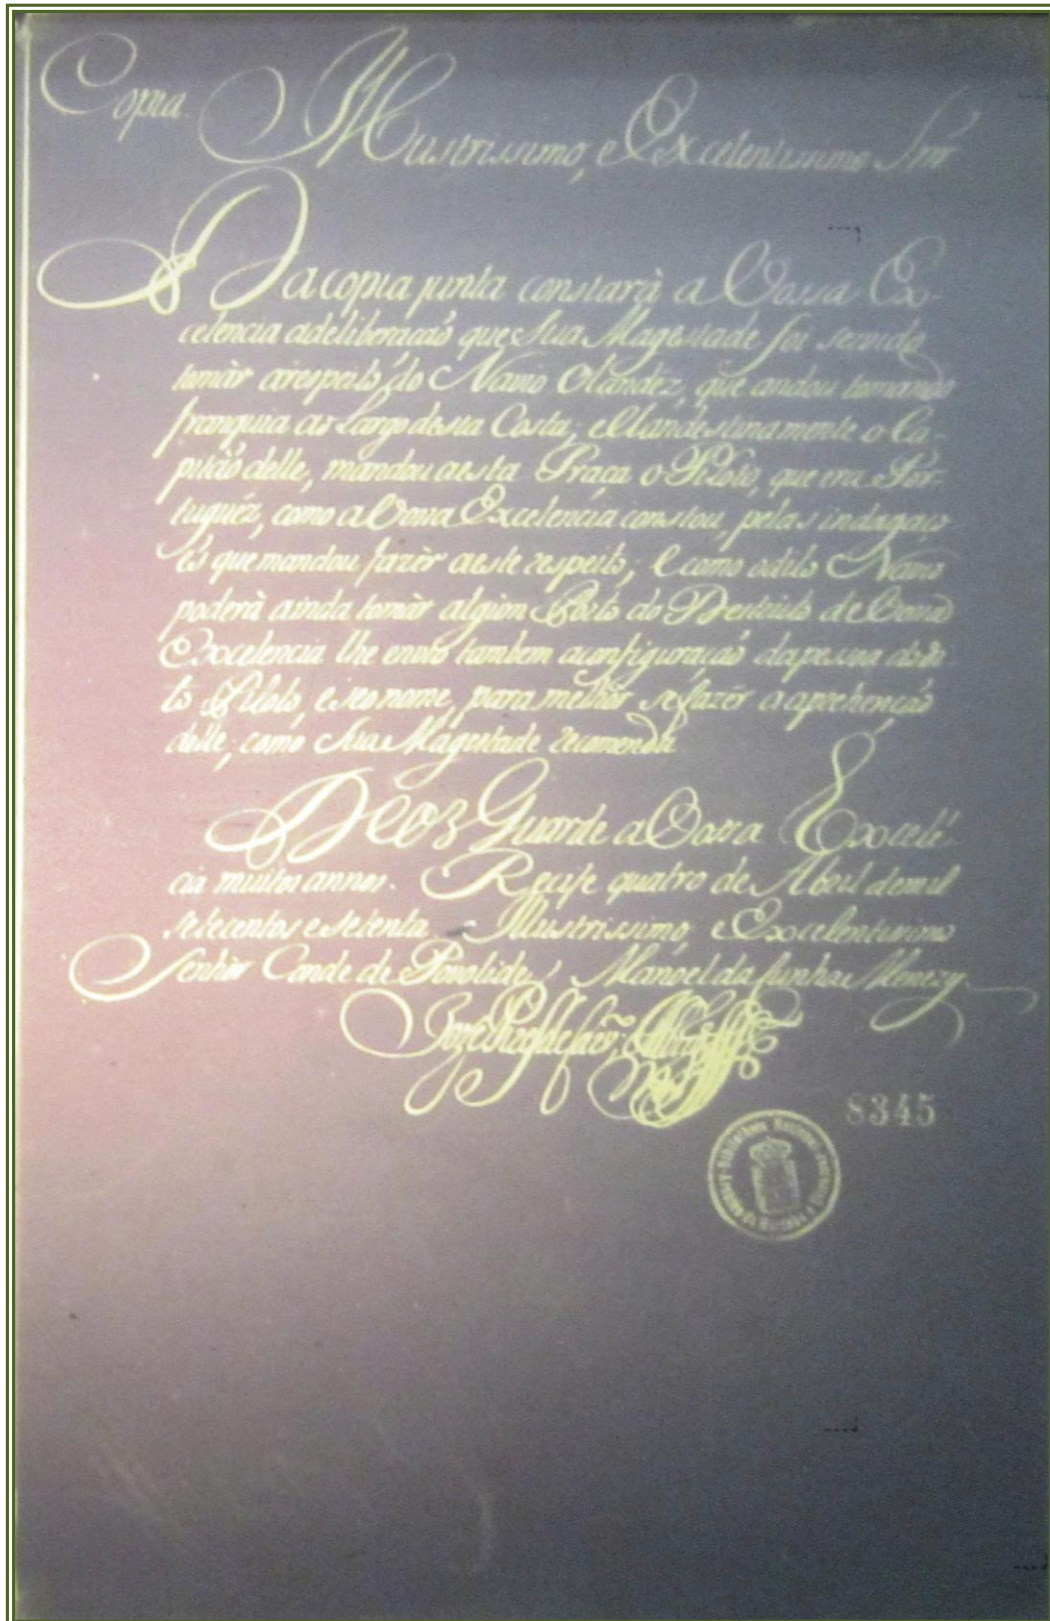 Copia.
Illustrissimo, e Excelentissimo Snr
Da copia junta constarà a Vossa Ex-
celencia adeliberaçaõ que Sua Magestade foi servido
tomàr arespeito do Navio Olandèz, que andou tomando
franquia ao Largo desta Costa; eClandestinamente o Ca-
pitaõ delle, mandou aesta Praça o Piloto, que era Por-
tuguéz, como a Vossa Excelencia constou, pelas indagaço-
es que mandou fazèr aeste respeito; e como odito Navio
poderà ainda tomàr algum Porto do Destricto de Vossa
Excelencia lhe envio tambem aconfiguraçaõ dapessoa dodi-
to Piloto, e seo nome, para melhor se fazèr a aprehençaõ
delle, como Sua Magestade recomenda.
Deos Guarde a Vossa Excelẽ-
cia muitos annos. Recife quatro de Abril demil
setecentos e setenta Illustrissimo, e Excelentissimo
Senhòr Conde de Povolide, Manoel da Cunha e Menezes
8345